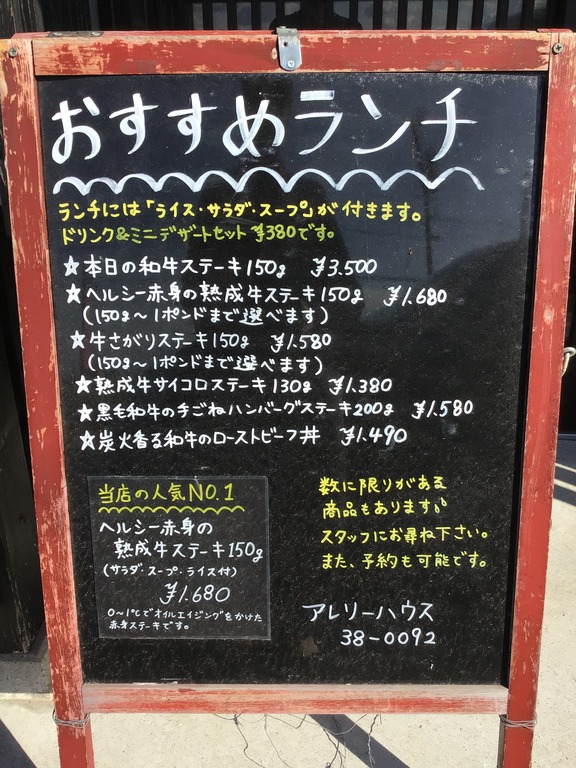 おすすめランチ
ランチには「ライス・サラダ・スープ」が付きます。
ドリンク&ミニデザートセット ¥380です。
☆本日の和牛ステーキ150g ¥3.500
☆ヘルシー赤身の熟成牛ステーキ150g ¥1.680
(150g〜1ポンドまで選べます)
☆牛さがりステーキ150g ¥1.580
(150g〜1ポンドまで選べます)
☆熟成牛サイコロステーキ130g ¥1.380
☆黒毛和牛の手ごねハンバーグステーキ200g ¥1.580
☆炭火香る和牛のローストビーフ丼 ¥1.490
当店の人気NO.1
ヘルシー赤身の
熟成牛ステーキ150g
(サラダ・スープ・ライス付)
¥1.680
0〜1℃でオイルエイジングをかけた
赤身ステーキです。
数に限りがある
商品もあります。
スタッフにお尋ね下さい。
また、予約も可能です。
アレリーハウス
38-0092